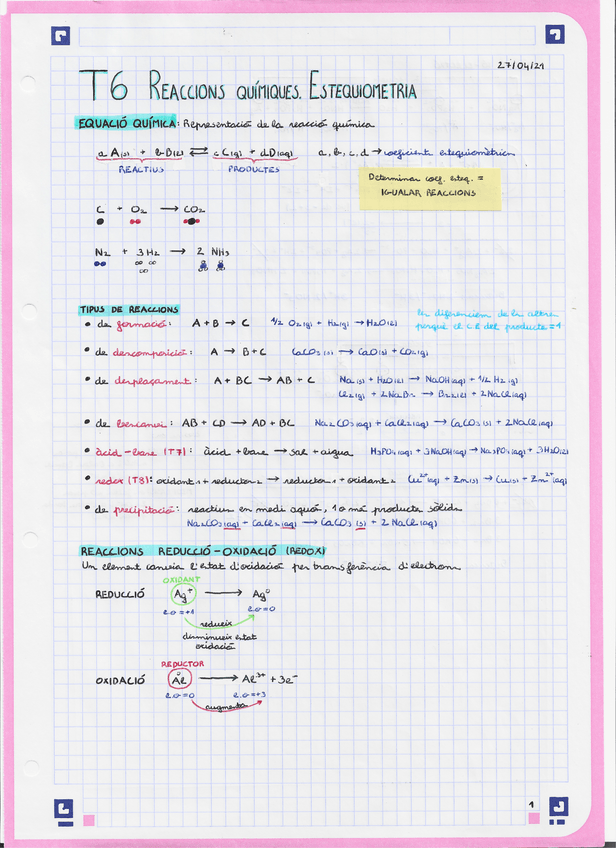 27/04/21
T6 REACCIONS QUÍMIQUES. ESTEQUIOMETRIA
EQUACIÓ QUÍMICA: Representació de la reacció química
a A(s) + b B(l) ⇄ c C(g) + d D(aq) a, b, c, d → coeficients estequiomètrics
REACTIUS PRODUCTES
Determinar coef. esteq. =
IGUALAR REACCIONS
C + O₂ → CO₂
N₂ + 3 H₂ → 2 NH₃
TIPUS DE REACCIONS
les diferenciem de la altres
perquè el c.e del producte = 1
• de formació: A + B → C 1/2 O₂(g) + H₂(g) → H₂O(l)
• de descomposició: A → B + C CaCO₃(s) → CaO(s) + CO₂(g)
• de desplaçament: A + BC → AB + C Na(s) + H₂O(l) → NaOH(aq) + 1/2 H₂(g)
Cl₂(g) + 2NaBr → Br₂(l) + 2NaCl(aq)
• de bescanvi: AB + CD → AD + BC Na₂CO₃(aq) + CaCl₂(aq) → CaCO₃(s) + 2NaCl(aq)
• àcid-base (T7): àcid + base → sal + aigua H₃PO₄(aq) + 3NaOH(aq) → Na₃PO₄(aq) + 3H₂O(l)
• redox (T8): oxidant 1 + reductor 2 → reductor 1 + oxidant 2 Cu²⁺(aq) + Zn(s) → Cu(s) + Zn²⁺(aq)
• de precipitació: reactius en medi aquós, 1 o més productes sòlids
Na₂CO₃(aq) + CaCl₂(aq) → CaCO₃(s) + 2 NaCl(aq)
REACCIONS REDUCCIÓ-OXIDACIÓ (REDOX)
Un element canvia l'estat d'oxidació per transferència d'electrons
OXIDANT
REDUCCIÓ Ag⁺ → Ag⁰
e.o=+1 e.o=0
redueix
disminueix estat
oxidació
REDUCTOR
OXIDACIÓ Al → Al³⁺ + 3e⁻
e.o=0 e.o=+3
augmenta
1